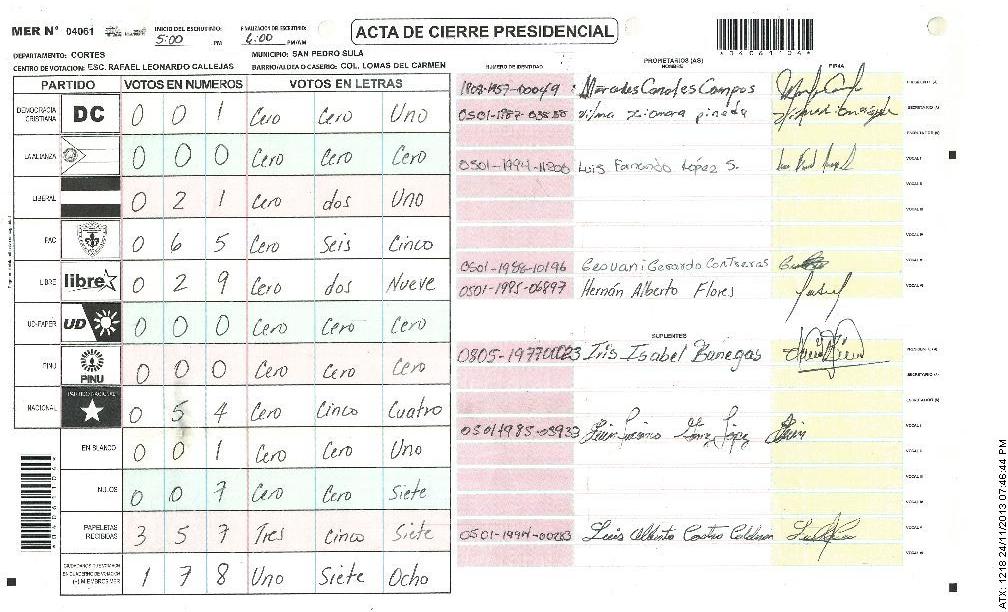 MER N° 04061 INICIO DEL ESCRUTINIO: 5:00 PM FINALIZACION DE ESCRUTINIO: 6:00 PM/AM
ACTA DE CIERRE PRESIDENCIAL
DEPARTAMENTO: CORTES MUNICIPIO: SAN PEDRO SULA
CENTRO DE VOTACION: ESC. RAFAEL LEONARDO CALLEJAS BARRIO/ALDEA O CASERIO: COL. LOMAS DEL CARMEN
PARTIDO VOTOS EN NUMEROS VOTOS EN LETRAS
DEMOCRACIA CRISTIANA DC 0 0 1 Cero Cero Uno
LA ALIANZA 0 0 0 Cero Cero Cero
LIBERAL 0 2 1 Cero dos Uno
PAC 0 6 5 Cero Seis Cinco
LIBRE libre 0 2 9 Cero dos Nueve
UD-FAPER UD 0 0 0 Cero Cero Cero
PINU PINU 0 0 0 Cero Cero Cero
NACIONAL PARTIDO NACIONAL 0 5 4 Cero Cinco Cuatro
EN BLANCO 0 0 1 Cero Cero Uno
NULOS 0 0 7 Cero Cero Siete
PAPELETAS RECIBIDAS 3 5 7 Tres cinco Siete
1 7 8 Uno Siete Ocho
PROPIETARIOS (AS)
NUMERO DE IDENTIDAD NOMBRE FIRMA
1808-1957-00049 Mercedes Canales Campos
0501-1987-03858 Vilma Xiomara pineda
0501-1994-11800 Luis Fernando López S.
0501-1988-10196 Geovani Gerardo Contreras
0501-1995-06897 Hernán Alberto Flores
SUPLENTES
0805-1977-00023 Iris Isabel Banegas
0501-1985-03933
0501-1994-00283 Luis Alberto Castro Calderon
ATX: 1218 24/11/2013 07:46:44 PM